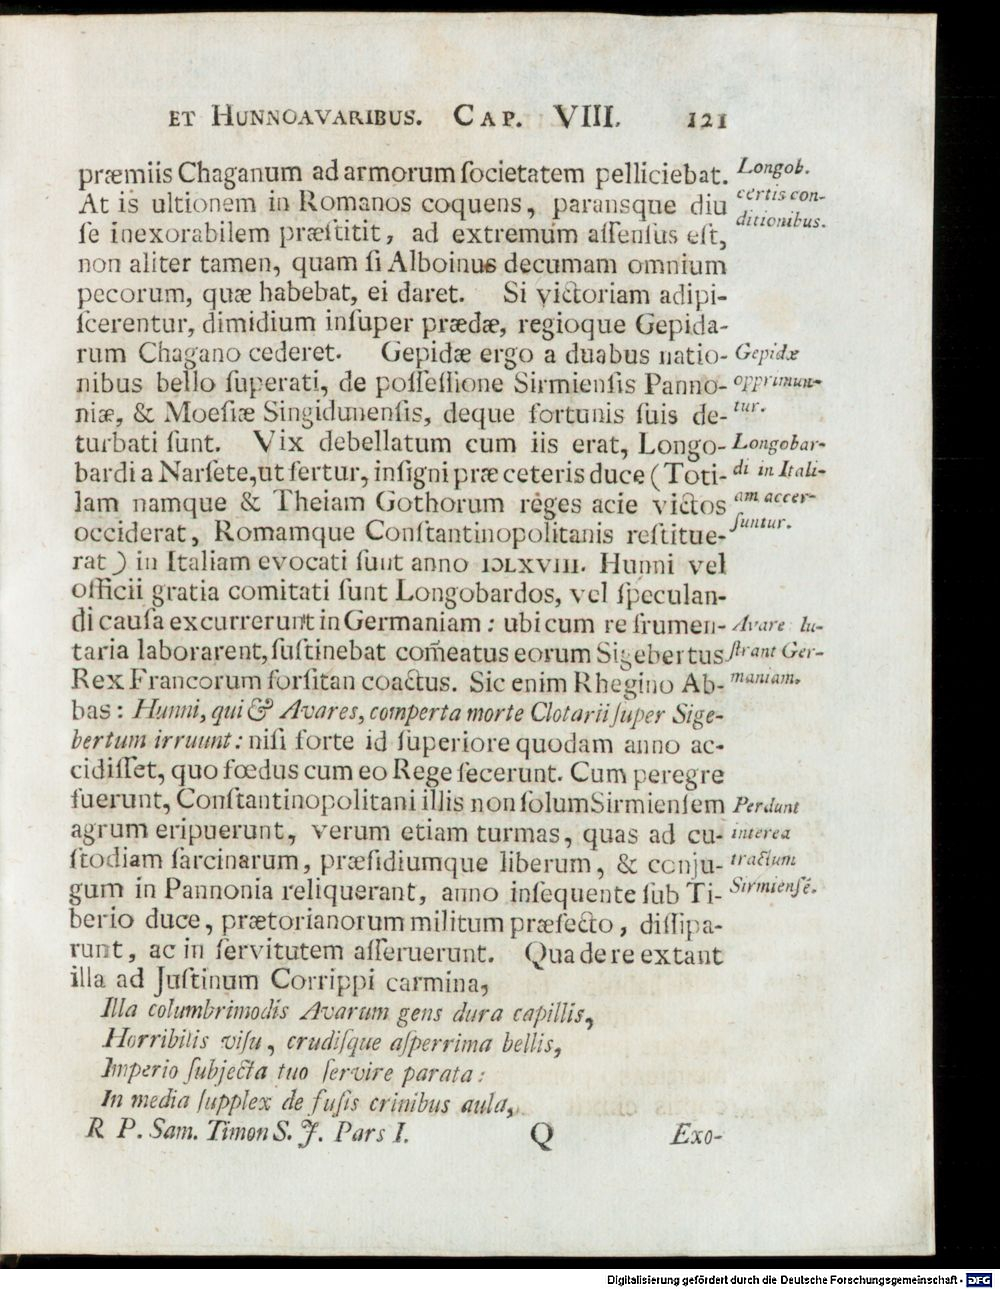 ET HUNNOAVARIBUS. CAP. VIII. 121
præmiis Chaganum ad armorum ſocietatem pelliciebat.
At is ultionem in Romanos coquens, paransque diu
ſe inexorabilem præſtitit, ad extremum aſſenſus eſt,
non aliter tamen, quam ſi Alboinus decumam omnium
pecorum, quæ habebat, ei daret. Si victoriam adipi-
ſcerentur, dimidium inſuper prædæ, regioque Gepida-
rum Chagano cederet. Gepidæ ergo a duabus natio-
nibus bello ſuperati, de poſſeſſione Sirmienſis Panno-
niæ, & Moeſiæ Singidunenſis, deque fortunis ſuis de-
turbati ſunt. Vix debellatum cum iis erat, Longo-
bardi a Narſete, ut fertur, inſigni præ ceteris duce (Toti-
lam namque & Theiam Gothorum reges acie victos
occiderat, Romamque Conſtantinopolitanis reſtitue-
rat) in Italiam evocati ſunt anno IDLXVIII. Hunni vel
officii gratia comitati ſunt Longobardos, vel ſpeculan-
di cauſa excurrerunt in Germaniam: ubi cum re frumen-
taria laborarent, ſuſtinebat com̃eatus eorum Sigebertus
Rex Francorum forſitan coactus. Sic enim Rhegino Ab-
bas: Hunni, qui & Avares, comperta morte Clotarii ſuper Sige-
bertum irruunt: niſi forte id ſuperiore quodam anno ac-
cidiſſet, quo fœdus cum eo Rege fecerunt. Cum peregre
fuerunt, Conſtantinopolitani illis non ſolum Sirmienſem
agrum eripuerunt, verum etiam turmas, quas ad cu-
ſtodiam ſarcinarum, præſidiumque liberum, & conju-
gum in Pannonia reliquerant, anno inſequente ſub Ti-
berio duce, prætorianorum militum præfecto, diſſipa-
runt, ac in ſervitutem aſſeruerunt. Qua de re extant
illa ad Juſtinum Corrippi carmina,
Illa columbrimodis Avarum gens dura capillis,
Horribilis viſu, crudiſque aſperrima bellis,
Imperio ſubjecta tuo ſervire parata:
In media ſupplex de fuſis crinibus aula,
R P. Sam. Timon S. J. Pars I. Q Exo-
Longob.
certis con-
ditionibus.
Gepidæ
opprimun-
tur.
Longobar-
di in Itali-
am accer-
ſuntur.
Avare lu-
ſtrant Ger-
maniam.
Perdunt
interea
tractum
Sirmienſé.
Digitalisierung gefördert durch die Deutsche Forschungsgemeinschaft - DFG